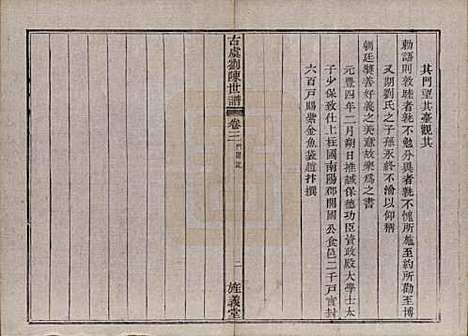 其門望其臺觀其
勅語則敦睦者孰不勉分異者孰不愧所施至約所勸至博
又期劉氏之子孫永終不渝以仰稱
朝廷奬善好義之美意故樂為之書
元豐四年二月朔日推誠保德功臣資政殿大學士太
子少保致仕上柱國南陽郡開國公食邑二千戶實封
六百戶賜紫金魚袋趙抃撰
古虞劉陳世譜
卷三
二
旌義堂